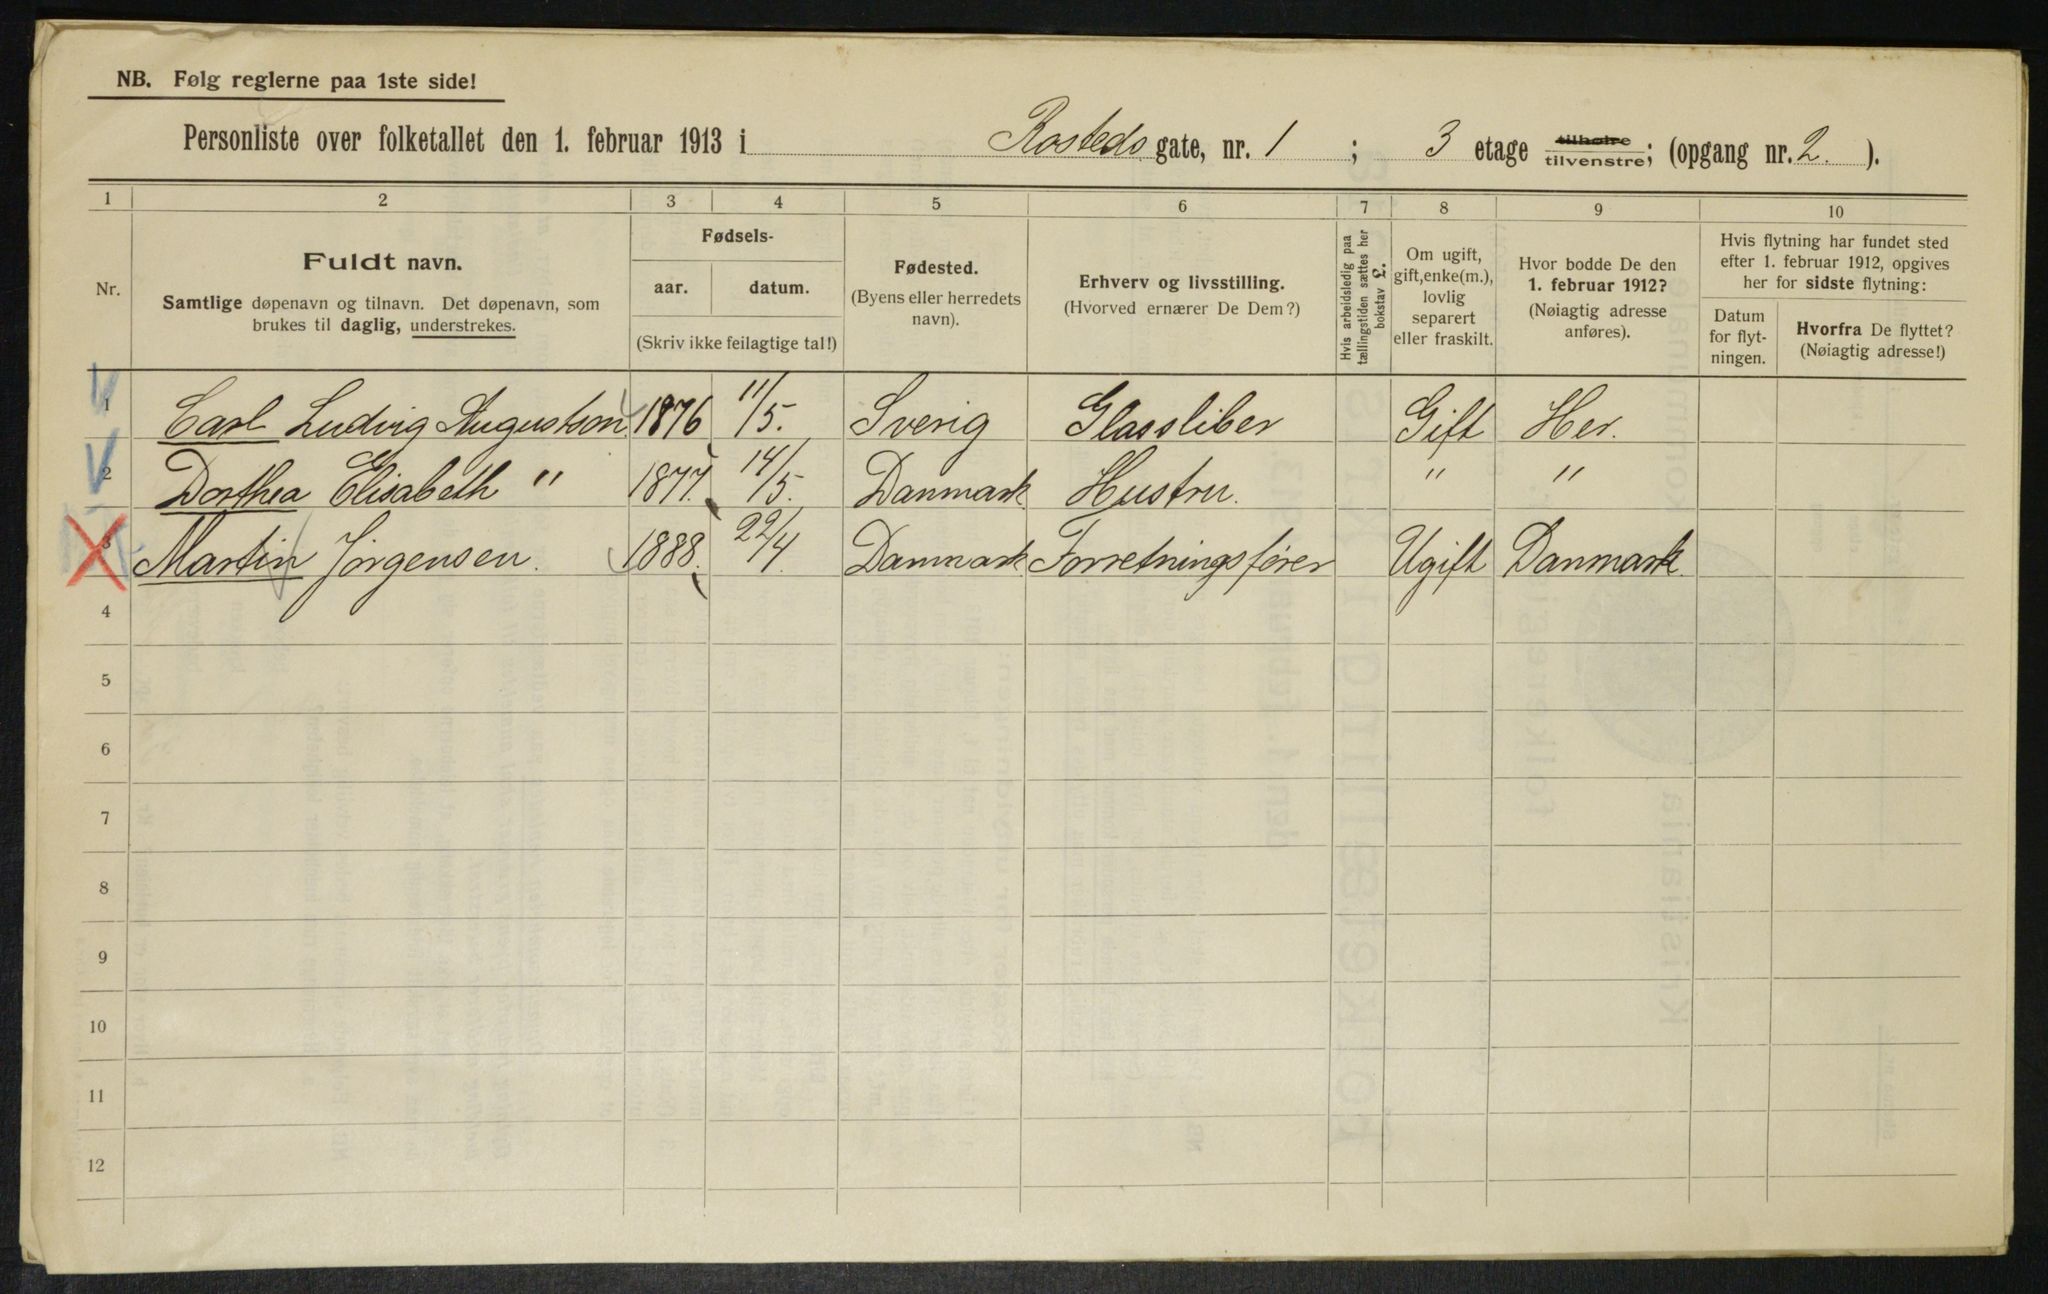 NB. Følg reglerne paa 1ste side!
Personliste over folketallet den 1. februar 1913 i Rosteds gate, nr. 1 ; 3 etage tilhøire tilvenstre; (opgang nr. 2. ).
1 2 3 4 5 6 7 8 9 10
Nr.
Fuldt navn.
Samtlige døpenavn og tilnavn. Det døpenavn, som
brukes til daglig, understrekes.
Fødsels-
aar. datum.
(Skriv ikke feilagtige tal!)
Fødested.
(Byens eller herredets
navn).
Erhverv og livsstilling.
(Hvorved ernærer De Dem?)
Hvis arbeidsledig paa
tællingstiden sættes her
bokstav L.
Om ugift,
gift, enke(m.),
lovlig
separert
eller fraskilt.
Hvor bodde De den
1. februar 1912?
(Nøiagtig adresse
anføres).
Hvis flytning har fundet sted
efter 1. februar 1912, opgives
her for sidste flytning:
Datum
for flyt-
ningen.
Hvorfra De flyttet?
(Nøiagtig adresse!)
1 Carl Ludvig Augustson 1876 11/5. Sverig Glassliber Gift Her.
2 Dorthea Elisabeth " 1877. 14/5. Danmark Hustru. " "
3 Martin Jörgensen. 1888. 22/4. Danmark Forretningsfører Ugift Danmark.
4
5
6
7
8
9
10
11
12